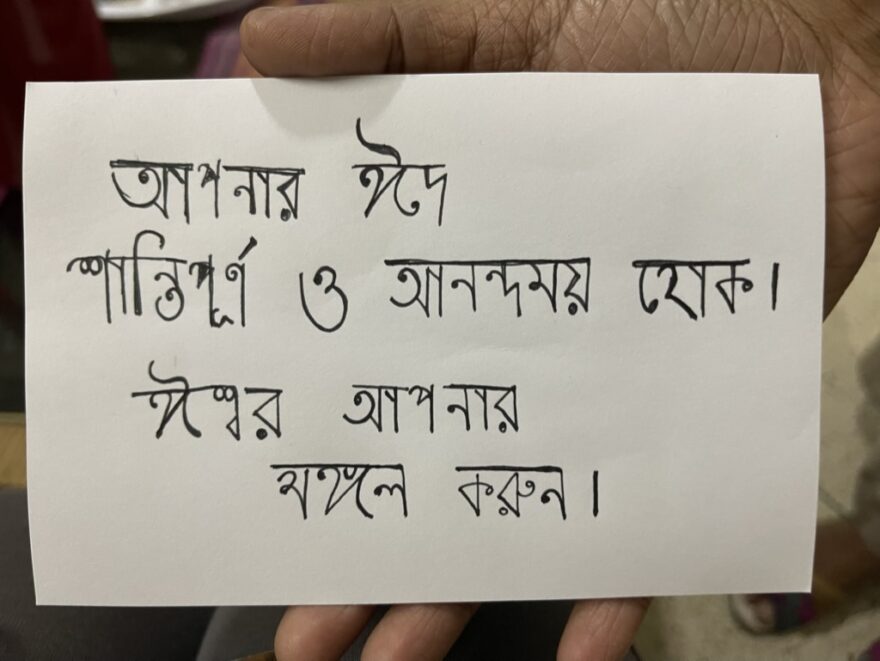 আপনার ঈদ
শান্তিপূর্ণ ও আনন্দময় হোক।
ঈশ্বর আপনার
মঙ্গল করুন।